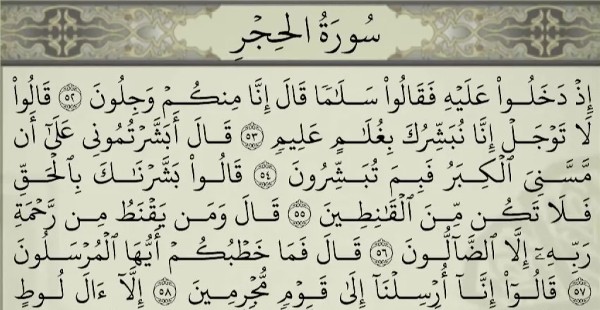 سُورَةُ الحِجْرِ
إِذْ دَخَلُوا۟ عَلَيْهِ فَقَالُوا۟ سَلَـٰمًا قَالَ إِنَّا مِنكُمْ وَجِلُونَ ٥٢ قَالُوا۟
لَا تَوْجَلْ إِنَّا نُبَشِّرُكَ بِغُلَـٰمٍ عَلِيمٍ ٥٣ قَالَ أَبَشَّرْتُمُونِى عَلَىٰٓ أَن
مَّسَّنِىَ ٱلْكِبَرُ فَبِمَ تُبَشِّرُونَ ٥٤ قَالُوا۟ بَشَّرْنَـٰكَ بِٱلْحَقِّ
فَلَا تَكُن مِّنَ ٱلْقَـٰنِطِينَ ٥٥ قَالَ وَمَن يَقْنَطُ مِن رَّحْمَةِ
رَبِّهِۦٓ إِلَّا ٱلضَّآلُّونَ ٥٦ قَالَ فَمَا خَطْبُكُمْ أَيُّهَا ٱلْمُرْسَلُونَ
٥٧ قَالُوٓا۟ إِنَّآ أُرْسِلْنَآ إِلَىٰ قَوْمٍ مُّجْرِمِينَ ٥٨ إِلَّآ ءَالَ لُوطٍ